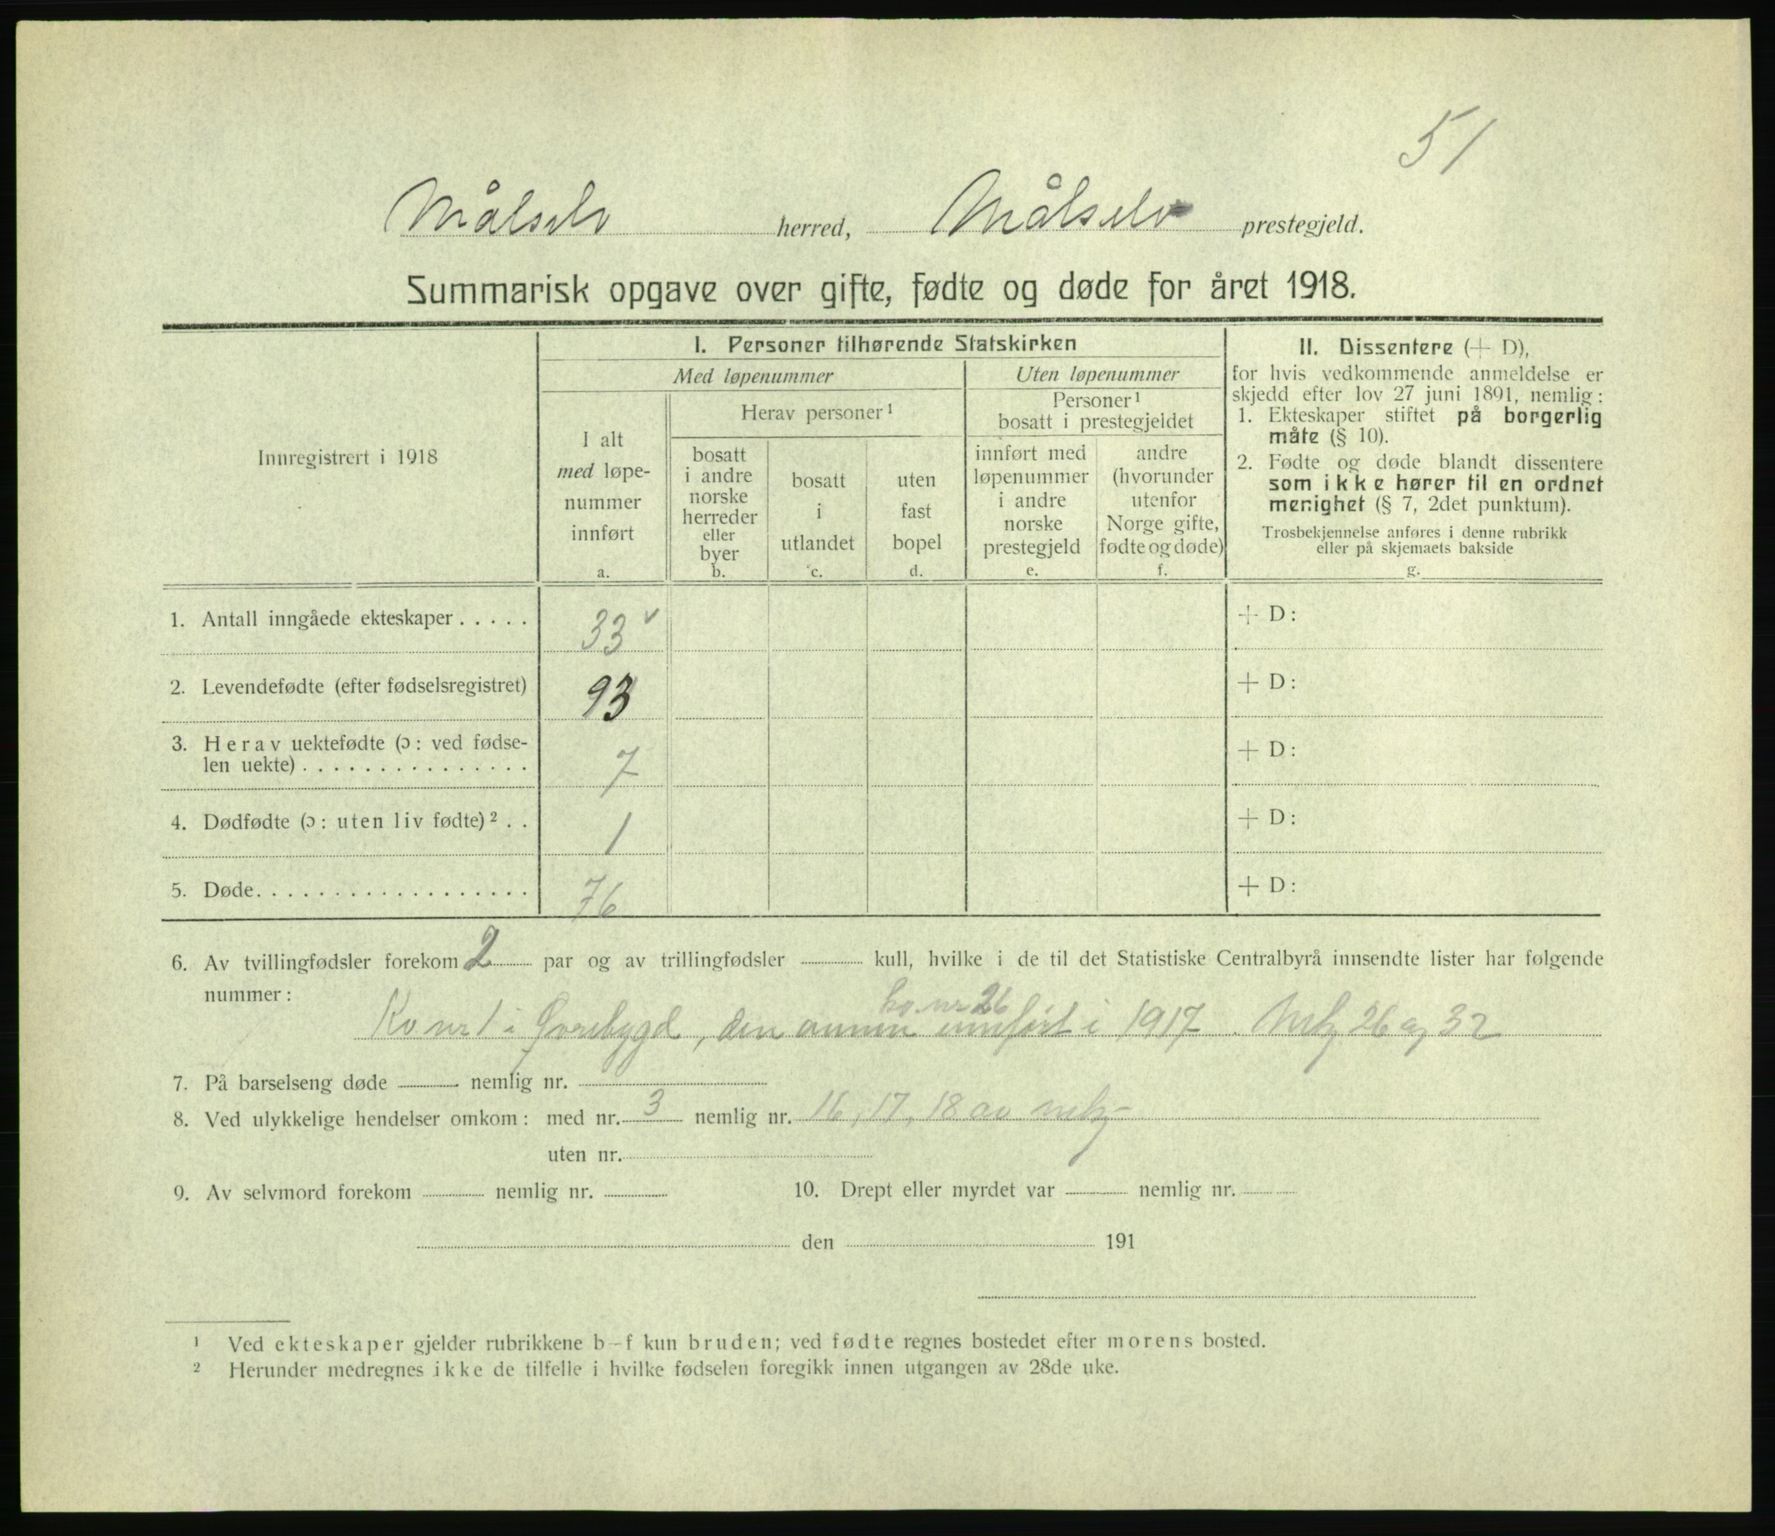 51
Målselv herred, Målselv prestegjeld.
Summarisk opgave over gifte, fødte og døde for året 1918.
Innregistrert i 1918
I. Personer tilhørende Statskirken
Med løpenummer
Uten løpenummer
I alt
med løpe-
nummer
innført
a.
Herav personer ¹
bosatt
i andre
norske
herreder
eller
byer
b.
bosatt
i
utlandet
c.
uten
fast
bopel
d.
Personer ¹
bosatt i prestegjeldet
innført med
løpenummer
i andre
norske
prestegjeld
e.
andre
(hvorunder
utenfor
Norge gifte,
fødte og døde)
f.
II. Dissentere (+ D),
for hvis vedkommende anmeldelse er
skjedd efter lov 27 juni 1891, nemlig:
1. Ekteskaper stiftet på borgerlig
måte (§ 10).
2. Fødte og døde blandt dissentere
som ikke hører til en ordnet
menighet (§ 7, 2det punktum).
Trosbekjennelse anføres i denne rubrikk
eller på skjemaets bakside
g.
1. Antall inngåede ekteskaper . . . . . 33 ✓ + D:
2. Levendefødte (efter fødselsregistret) 93 + D:
3. Herav uektefødte (ɔ: ved fødse-
len uekte) . . . . . . . . . . . . . . . 7 + D:
4. Dødfødte (ɔ: uten liv fødte) ² . . 1 + D:
5. Døde. . . . . . . . . . . . . . . . . . 76 + D:
6. Av tvillingfødsler forekom 2 par og av trillingfødsler kull, hvilke i de til det Statistiske Centralbyrå innsendte lister har følgende
nummer:
ko nr 26
Ko nr 1 i Øvrebygd, den annen innført i 1917. 26 og 32
7. På barselseng døde nemlig nr.
8. Ved ulykkelige hendelser omkom: med nr. 3 nemlig nr. 16, 17, 18 av
uten nr.
9. Av selvmord forekom nemlig nr. 10. Drept eller myrdet var nemlig nr.
den 191
¹ Ved ekteskaper gjelder rubrikkene b–f kun bruden; ved fødte regnes bostedet efter morens bosted.
² Herunder medregnes ikke de tilfelle i hvilke fødselen foregikk innen utgangen av 28de uke.